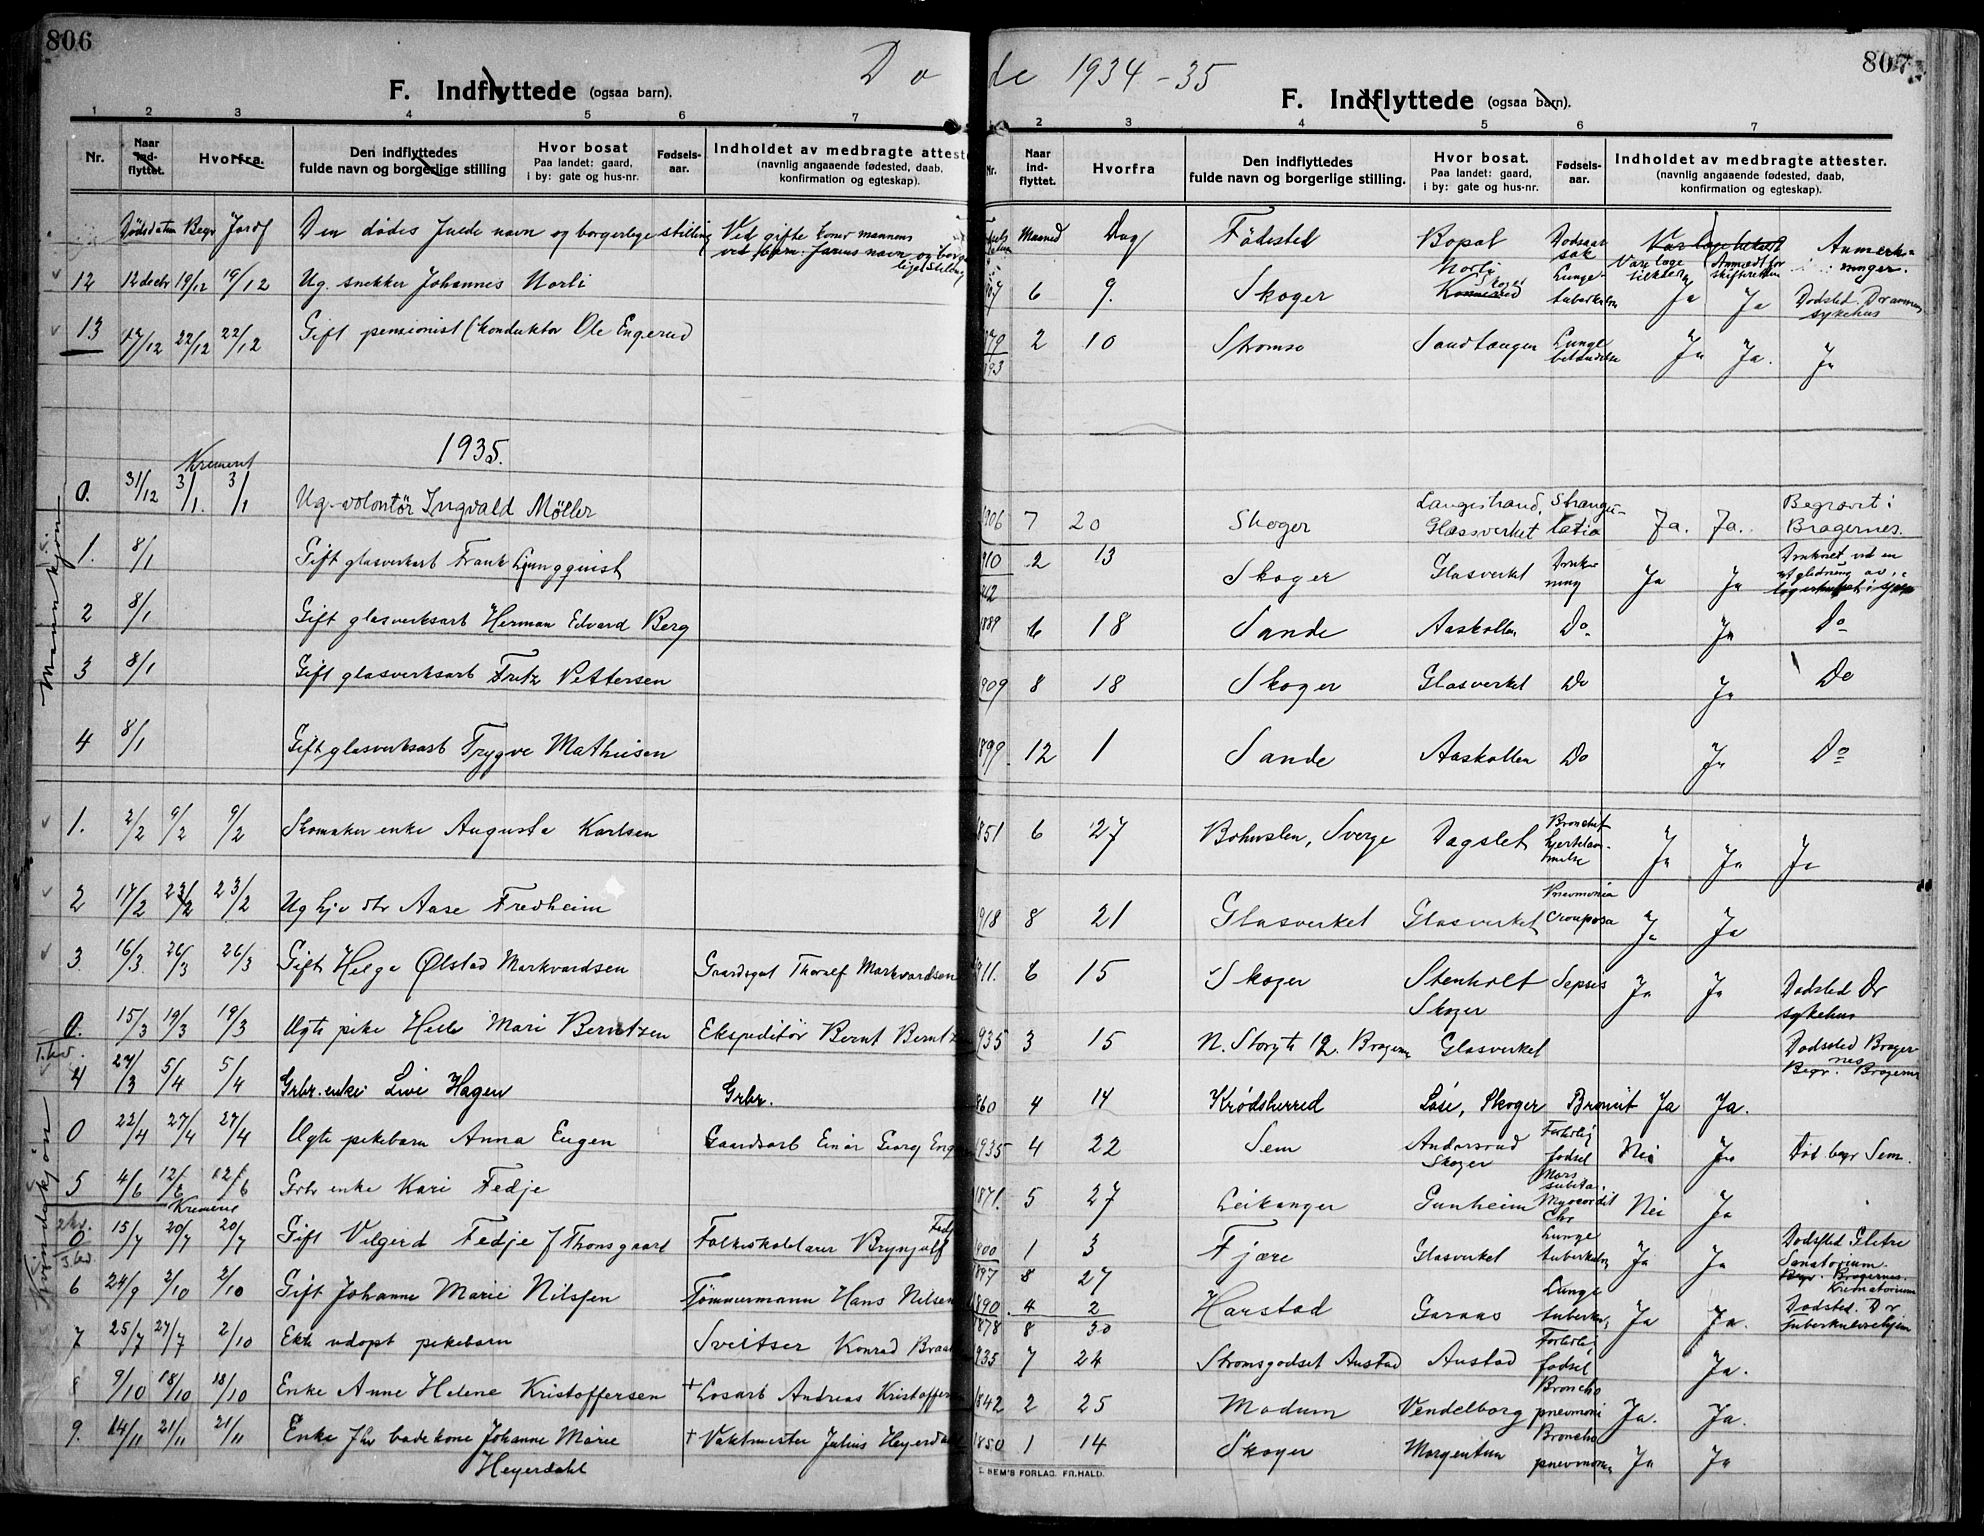 806
Dø
F. Indflyttede (ogsaa barn).
1 2 3 4 5 6 7
Nr. Naar ind-flyttet. Hvorfra. Den indflyttedes fulde navn og borgerlige stilling Hvor bosat Paa landet: gaard, i by: gate og hus-nr. Fødsels-aar. Indholdet av medbragte attester (navnlig angaaende fødested, daab, konfirmation og egteskap).
Dødsdatum Begr Jordf Den dødes fulde navn og borgerlige stilling Ved gifte koner mannens
ved barn: farens navn og borgerliget stilling
12 12 decbr 19/12 19/12 Ug. snekker Johannes Norli
13 17/12 22/12 22/12 Gift pensionist (konduktør Ole Engerud
1935.
Kremert
Mannkjøn
0. 31/12 3/1. 3/1 Ug. volontör Ingvald Möller
1. 8/1 Gift glasverksarb Frank Ljungquist
2 8/1 Gift glasverksarb Herman Edvard Berg
3 8/1 Gift glasverksarb Fritz Pettersen
4 8/1 Gift glasverksarb Trygve Mathiesen
1. 2/2 9/2 9/2 Skomaker enke Augusta Karlsen
2 17/2 23/2 23/2 Ug hj. dtr Aase Fredheim
3. 16/3. 26/3 26/3 Gift Helga Ølstad Markvardsen Gaardsgut Thoralf Markvardsen
0. 15/3 19/3 19/3 Ugte pike Mari Berntzen Ekspeditör Bernt Berntz
1.kv.
4 27/3 5/4 5/4 Grbr. enke Live Hagen Grbr.
Kvindekjøn
0 22/4 27/4 27/4 Ugte pikebarn Anna Eugen Gaardsarb Einar Georg Eng
5 4/6 12/6 12/6 Grbr enke Kari Fedje
Kremert
2 kv.
0 15/7 20/7 20/7 Gift Valgerd Fedje f Thonsgaard Folkeskolelærer Brynjulf Fedj
3. kv
6 24/9 2/10 2/10 Gift Johanne Marie Nilsen Tømmermann Hans Nilsen
7 25/7 27/7 2/10 Ekte udøpt pikebarn Sveitser Konrad Braa
8 9/10 18/10 18/10 Enke Anne Helene Kristoffersen † Losarb Andreas Kristoffer
9. 14/11 21/11 21/11 Enke fhv badekone Johanne Marie † Vaktmester Julius Heyerda
Heyerdahl
807
de 1934-35
F. Indflyttede (ogsaa barn).
2 3 4 5 6 7
Nr. Naar ind-flyttet. Hvorfra Den indflyttedes fulde navn og borgerlige stilling. Hvor bosat. Paa landet: gaard, i by: gate og hus-nr. Fødsels-aar. Indholdet av medbragte attester. (navnlig angaaende fødested, daab, konfirmation og egteskap).
Maaned Dag Födested Bopæl Dødsaarsak Var læge tilkaldt Anmeldt for skifteretten Anmerkninger.
6 9. Skoger Norli Skoger Konnerud Lungetuberkulose Ja Ja Dødsted. Drammen sykehus
2 10 Strømsø Sandtangen Lungebetændelse Ja Ja. Ja
1906 7 20 Skoger Langestrand, Glassverket Strangulatio Ja. Ja. Begravet i Bragernes.
1910 2 13 Skoger Glasverket Drukning Ja Ja Druknet ved en utglidning av
1889 6 18 Sande Aaskollen Do Ja Do
1909 8 18 Skoger Glasverket Do Ja Do
1899 12 1 Sande Aaskollen Do Ja Do
1851 6 27 Bohuslen, Sverge Dagslet Bronchit hjertelammelse Ja Ja Ja
1918 8 21 Glasverket Glasverket Pneumonia Crouposa Ja Ja
1911. 6 15 Skoger Stenholt Skoger Sepsis Ja Ja Dødsted Dr sykehus
1935 3 15 N. Storgt 12. Bragernes Glasverket Dødssted Bragernes Begr. Bragernes
1860 4 14 Krødsherred Løse, Skoger Bronkit Ja Ja.
1935 4 22 Sem Andersrud Skoger For tidlig fødsel Nei Ja Død begr Sem.
1871. 5 27 Leikanger Gunheim Mors subita. Myocardit Chr Nei Ja
1900 1 3 Fjære Glasverket Lungetuberkulose Ja Ja Dødssted Gletre Sanatorium. Begr. Bragernes Krematorium
1897 8 27
1890 4 2 Harstad Garaas Lungetuberku Ja Ja. Dødsted. Dr Tuberkulosehjem
1878 8 30
1935 7 24 Strømsgodset Austad Austad For tidlig fødsel Ja.
1842 2 25 Modum Vendelborg Broncho pneumoni Ja. Ja.
1850 1 14 Skoger Morgentun Broncho pneumoni Ja Ja
E. SEM'S FORLAG. FR.HALD.